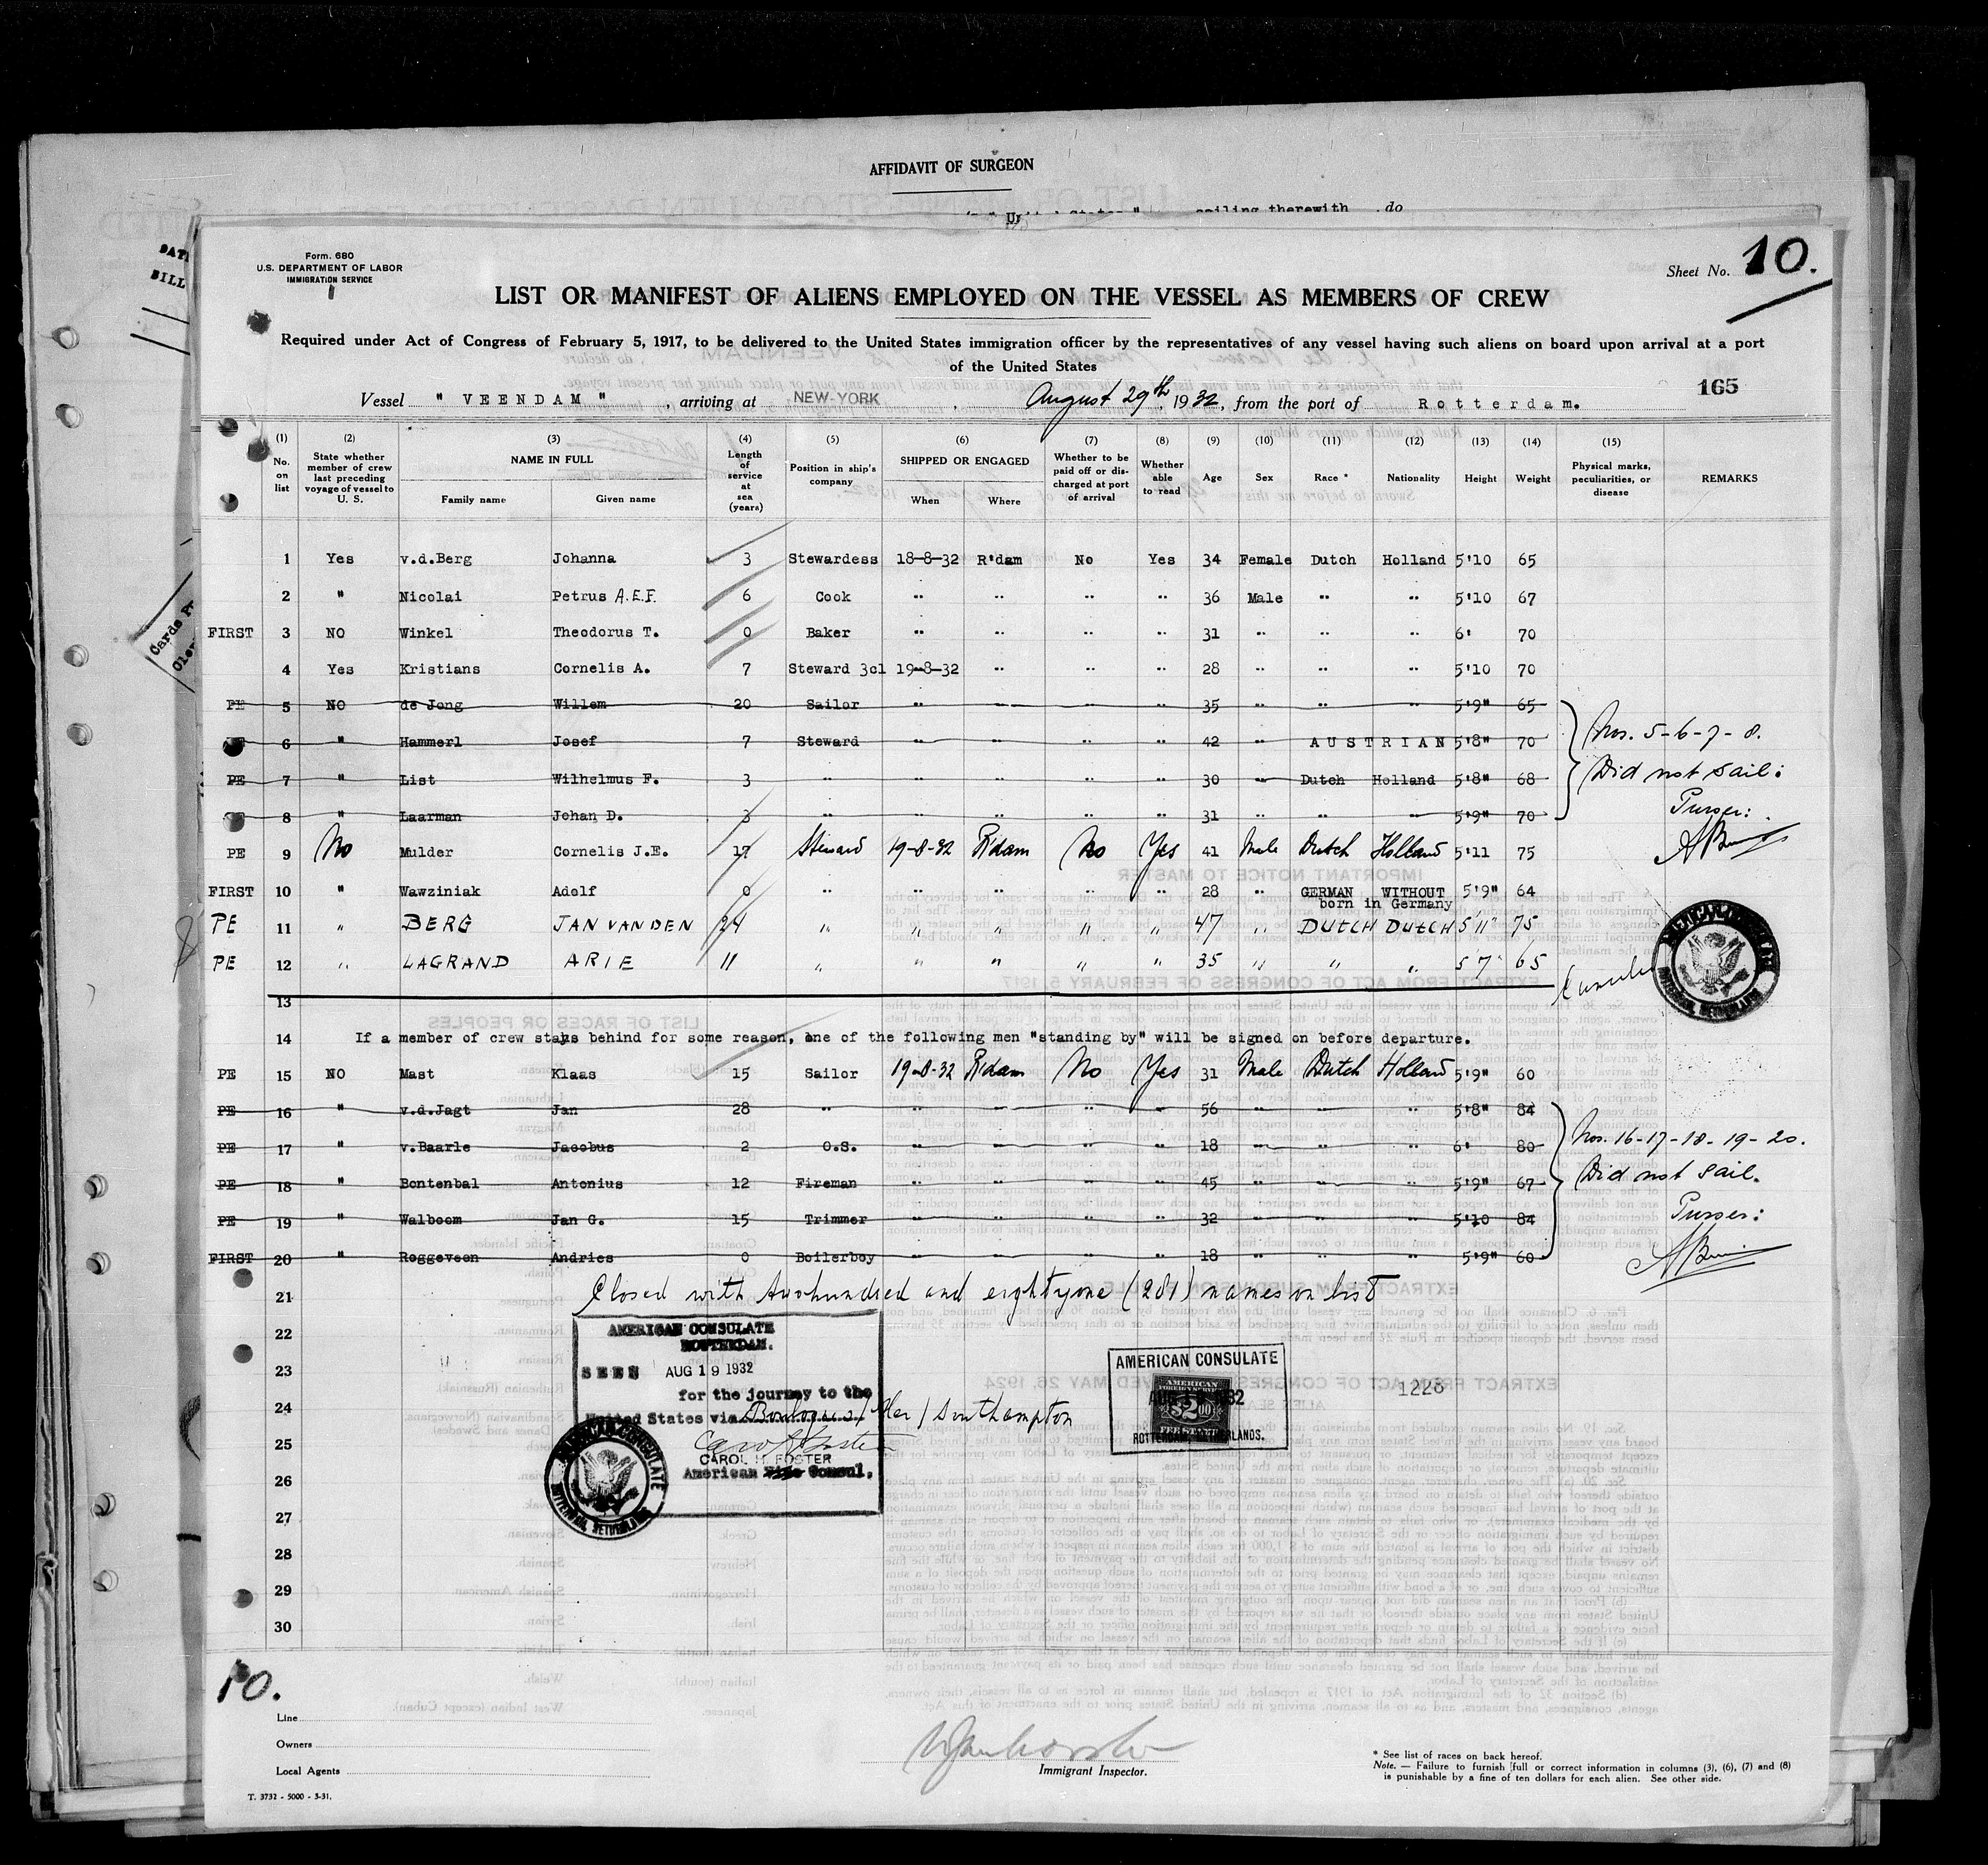 AFFIDAVIT OF SURGEON
sailing therewith do
Form. 680
U.S. DEPARTMENT OF LABOR
IMMIGRATION SERVICE
Sheet No. 10.
LIST OR MANIFEST OF ALIENS EMPLOYED ON THE VESSEL AS MEMBERS OF CREW
Required under Act of Congress of February 5, 1917, to be delivered to the United States immigration officer by the representatives of any vessel having such aliens on board upon arrival at a port
of the United States
165
Vessel " VEENDAM " , arriving at NEW-YORK , August 29th, 1932, from the port of Rotterdam.
(1) (2) (3) (4) (5) (6) (7) (8) (9) (10) (11) (12) (13) (14) (15)
No. on list State whether member of crew last preceding voyage of vessel to U. S. NAME IN FULL Family name Given name Length of service at sea (years) Position in ship's company SHIPPED OR ENGAGED When Where Whether to be paid off or discharged at port of arrival Whether able to read Age Sex Race * Nationality Height Weight Physical marks, peculiarities, or disease REMARKS
1 Yes v.d.Berg Johanna 3 Stewardess 18-8-32 R'dam No Yes 34 Female Dutch Holland 5'10 65
2 " Nicolai Petrus A.E.F. 6 Cook " " " " 36 Male " " 5'10 67
FIRST 3 NO Winkel Theodorus T. 0 Baker " " " " 31 " " " 6' 70
4 Yes Kristians Cornelis A. 7 Steward 3cl 19-8-32 " " " 28 " " " 5'10 70
PE 5 NO de Jong Willem 20 Sailor " " " " 35 " " " 5'9" 65
6 " Hammerl Josef 7 Steward " " " " 42 " AUSTRIAN 5'8" 70
PE 7 " List Wilhelmus F. 3 " " " " " 30 " Dutch Holland 5'8" 68
8 " Laarman Johan D. 3 " " " " " 31 " " " 5'9" 70
Nos. 5-6-7-8.
Did not sail:
Purser:
PE 9 No Mulder Cornelis J.E. 17 Steward 19-8-32 R'dam No Yes 41 Male Dutch Holland 5'11 75
FIRST 10 " Wawziniak Adolf 0 " " " " " 28 " GERMAN WITHOUT 5'9" 64
born in Germany
PE 11 " BERG JAN VAN DEN 24 " " " " " 47 " DUTCH DUTCH 5'11" 75
PE 12 " LAGRAND ARIE 11 " " " " " 35 " " " 5'7" 65
13
14 If a member of crew stays behind for some reason, one of the following men "standing by" will be signed on before departure.
PE 15 NO Mast Klaas 15 Sailor 19-8-32 R'dam No Yes 31 Male Dutch Holland 5'9" 60
PE 16 " v.d.Jagt Jan 28 " " " " " 56 " " " 5'8" 84
PE 17 " v.Baarle Jacobus 2 O.S. " " " " 18 " " " 6' 80
PE 18 " Bontenbal Antonius 12 Fireman " " " " 45 " " " 5'9" 67
PE 19 " Walboom Jan G. 15 Trimmer " " " " 32 " " " 5'10 84
FIRST 20 " Roggeveen Andries 0 Boilerboy " " " " 18 " " " 5'9" 60
Nos. 16-17-18-19-20.
Did not sail.
Purser:
21 Closed with twohundred and eightyone (281) names on list
22
23
24
25
26
27
28
29
30
AMERICAN CONSULATE
ROTTERDAM.
SEEN AUG 19 1932
for the journey to the
United States via Boulogne s/Mer / Southampton
CAROL H. FOSTER
American Vice Consul.
AMERICAN CONSULATE
AMERICAN
$2.00
ROTTERDAM, NETHERLANDS.
1228
10.
Line
Owners
Local Agents
Immigrant Inspector.
* See list of races on back hereof.
Note. — Failure to furnish full or correct information in columns (3), (6), (7) and (8)
is punishable by a fine of ten dollars for each alien. See other side.
T. 3732 - 5000 - 3-31.